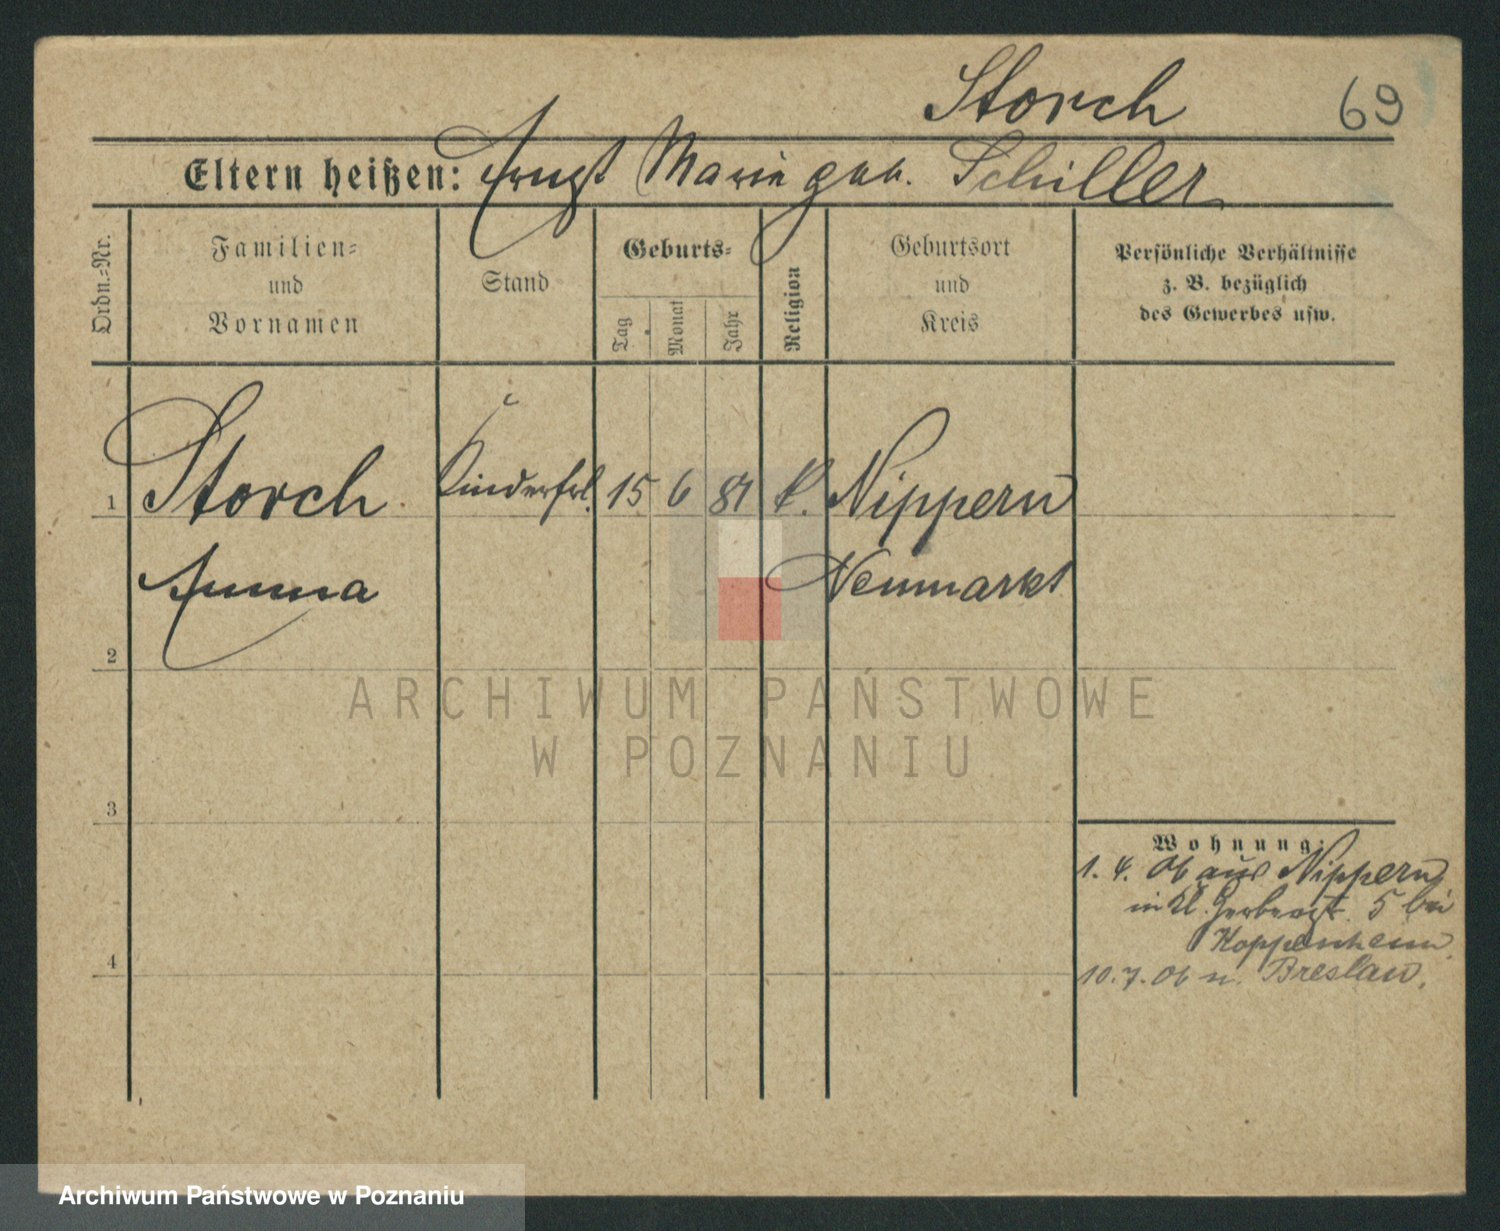 Storch
69
Eltern heißen: Ernst Marie geb. Schiller
Ordn.=Nr.
Familien=
und
Vornamen
Stand
Geburts=
Tag
Monat
Jahr
Religion
Geburtsort
und
Kreis
Persönliche Verhältnisse
z. B. bezüglich
des Gewerbes usw.
1
Storch
Kinderfrl.
15
6
87
k.
Nippern
Anna
Neumarkt
2
ARCHIWUM PAŃSTWOWE
W POZNANIU
3
Wohnung:
1. 4. 06 aus Nippern
in Kl. Gerberst. 5 bei
Koppenheim
4
10.7.06 n. Breslau.
Archiwum Państwowe w Poznaniu